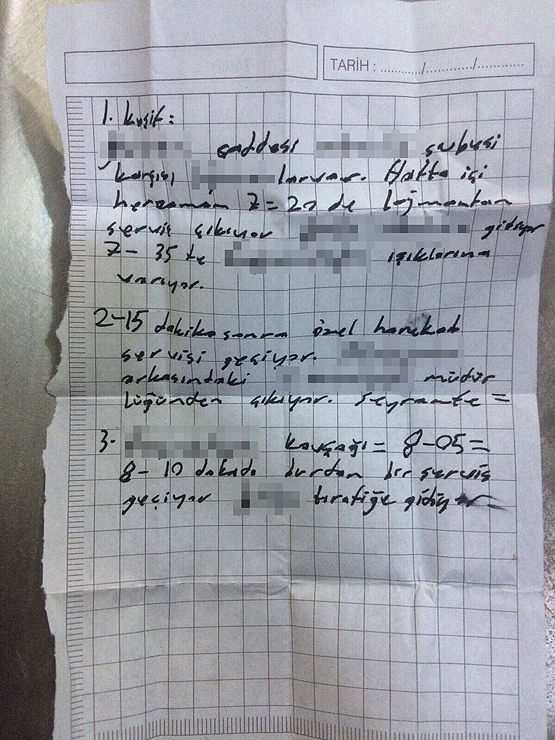 TARİH : ........../........../..........
1. Keşif:
caddesi şubesi
karşısı larvar. Hafta içi
herzaman 7=20 de Lojmandan
servis çıkıyor gidiyor
7-35 te ışıklarına
varıyor.
2-15 dakika sonra özel harekad
servisi geçiyor.
arkasındaki müdür
lüğünden çıkıyor.
3- kavşağı = 8-05=
8-10 dakada burdan bir servis
geçiyor tırafiğe gidiyor